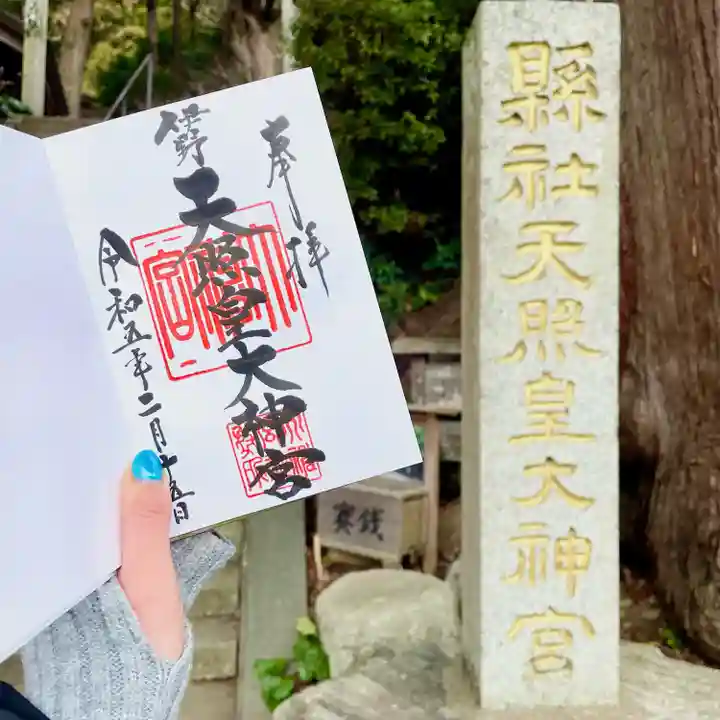 奉拝
伊野
天照皇大神宮
令和五年二月十五日
縣社天照皇大神宮
賽銭